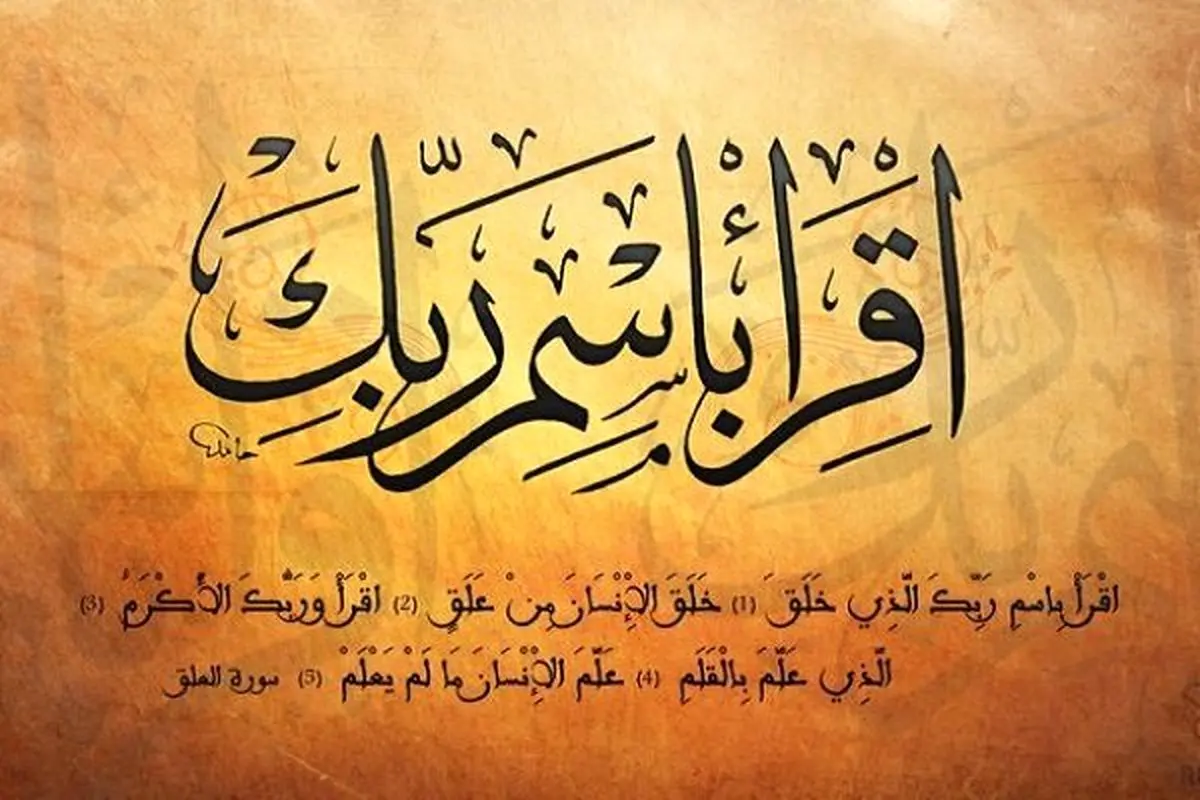 اقْرَأْ بِاسْمِ رَبِّكَ
اقْرَأْ بِاسْمِ رَبِّكَ الَّذِي خَلَقَ (1) خَلَقَ الإِنْسَانَ مِنْ عَلَقٍ (2) اقْرَأْ وَرَبُّكَ الأَكْرَمُ (3)
الَّذِي عَلَّمَ بِالْقَلَمِ (4) عَلَّمَ الإِنْسَانَ مَا لَمْ يَعْلَمْ (5) سورة العلق